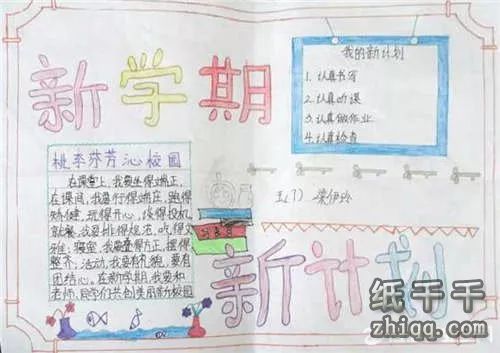 新学期
我的新计划
1.认真书写
2.认真听课
3.认真做作业
4.认真检查
桃李芬芳沁校园
在课堂上,我要坐得端正,
在课间,我要行得端庄,跑得
矫健,玩得开心,谈得投机
就餐,我要排得悠然,吃得文
雅,寝室,我要叠得方正,摆得
整齐,活动,我要有礼貌,要有
团结心。在新学期,我要和
老师,同学们共创美丽新校园
五(7) 梁伊
新计划
纸千千
zhiqq.com